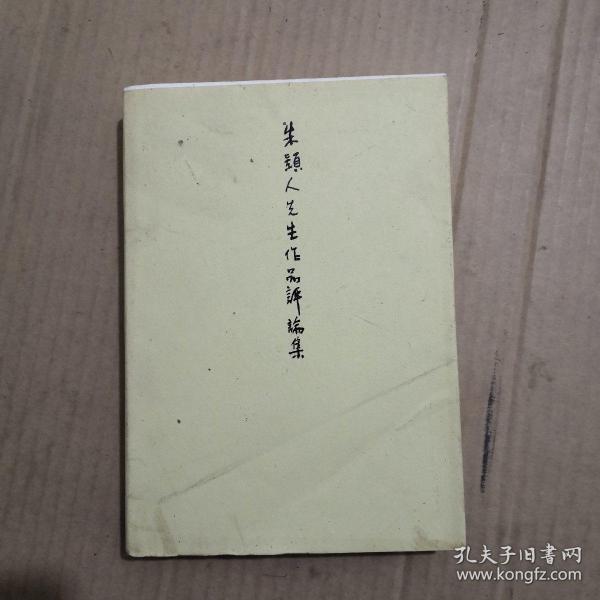 朱穎人先生作品評論集
孔夫子旧書网
www.kongfz.com